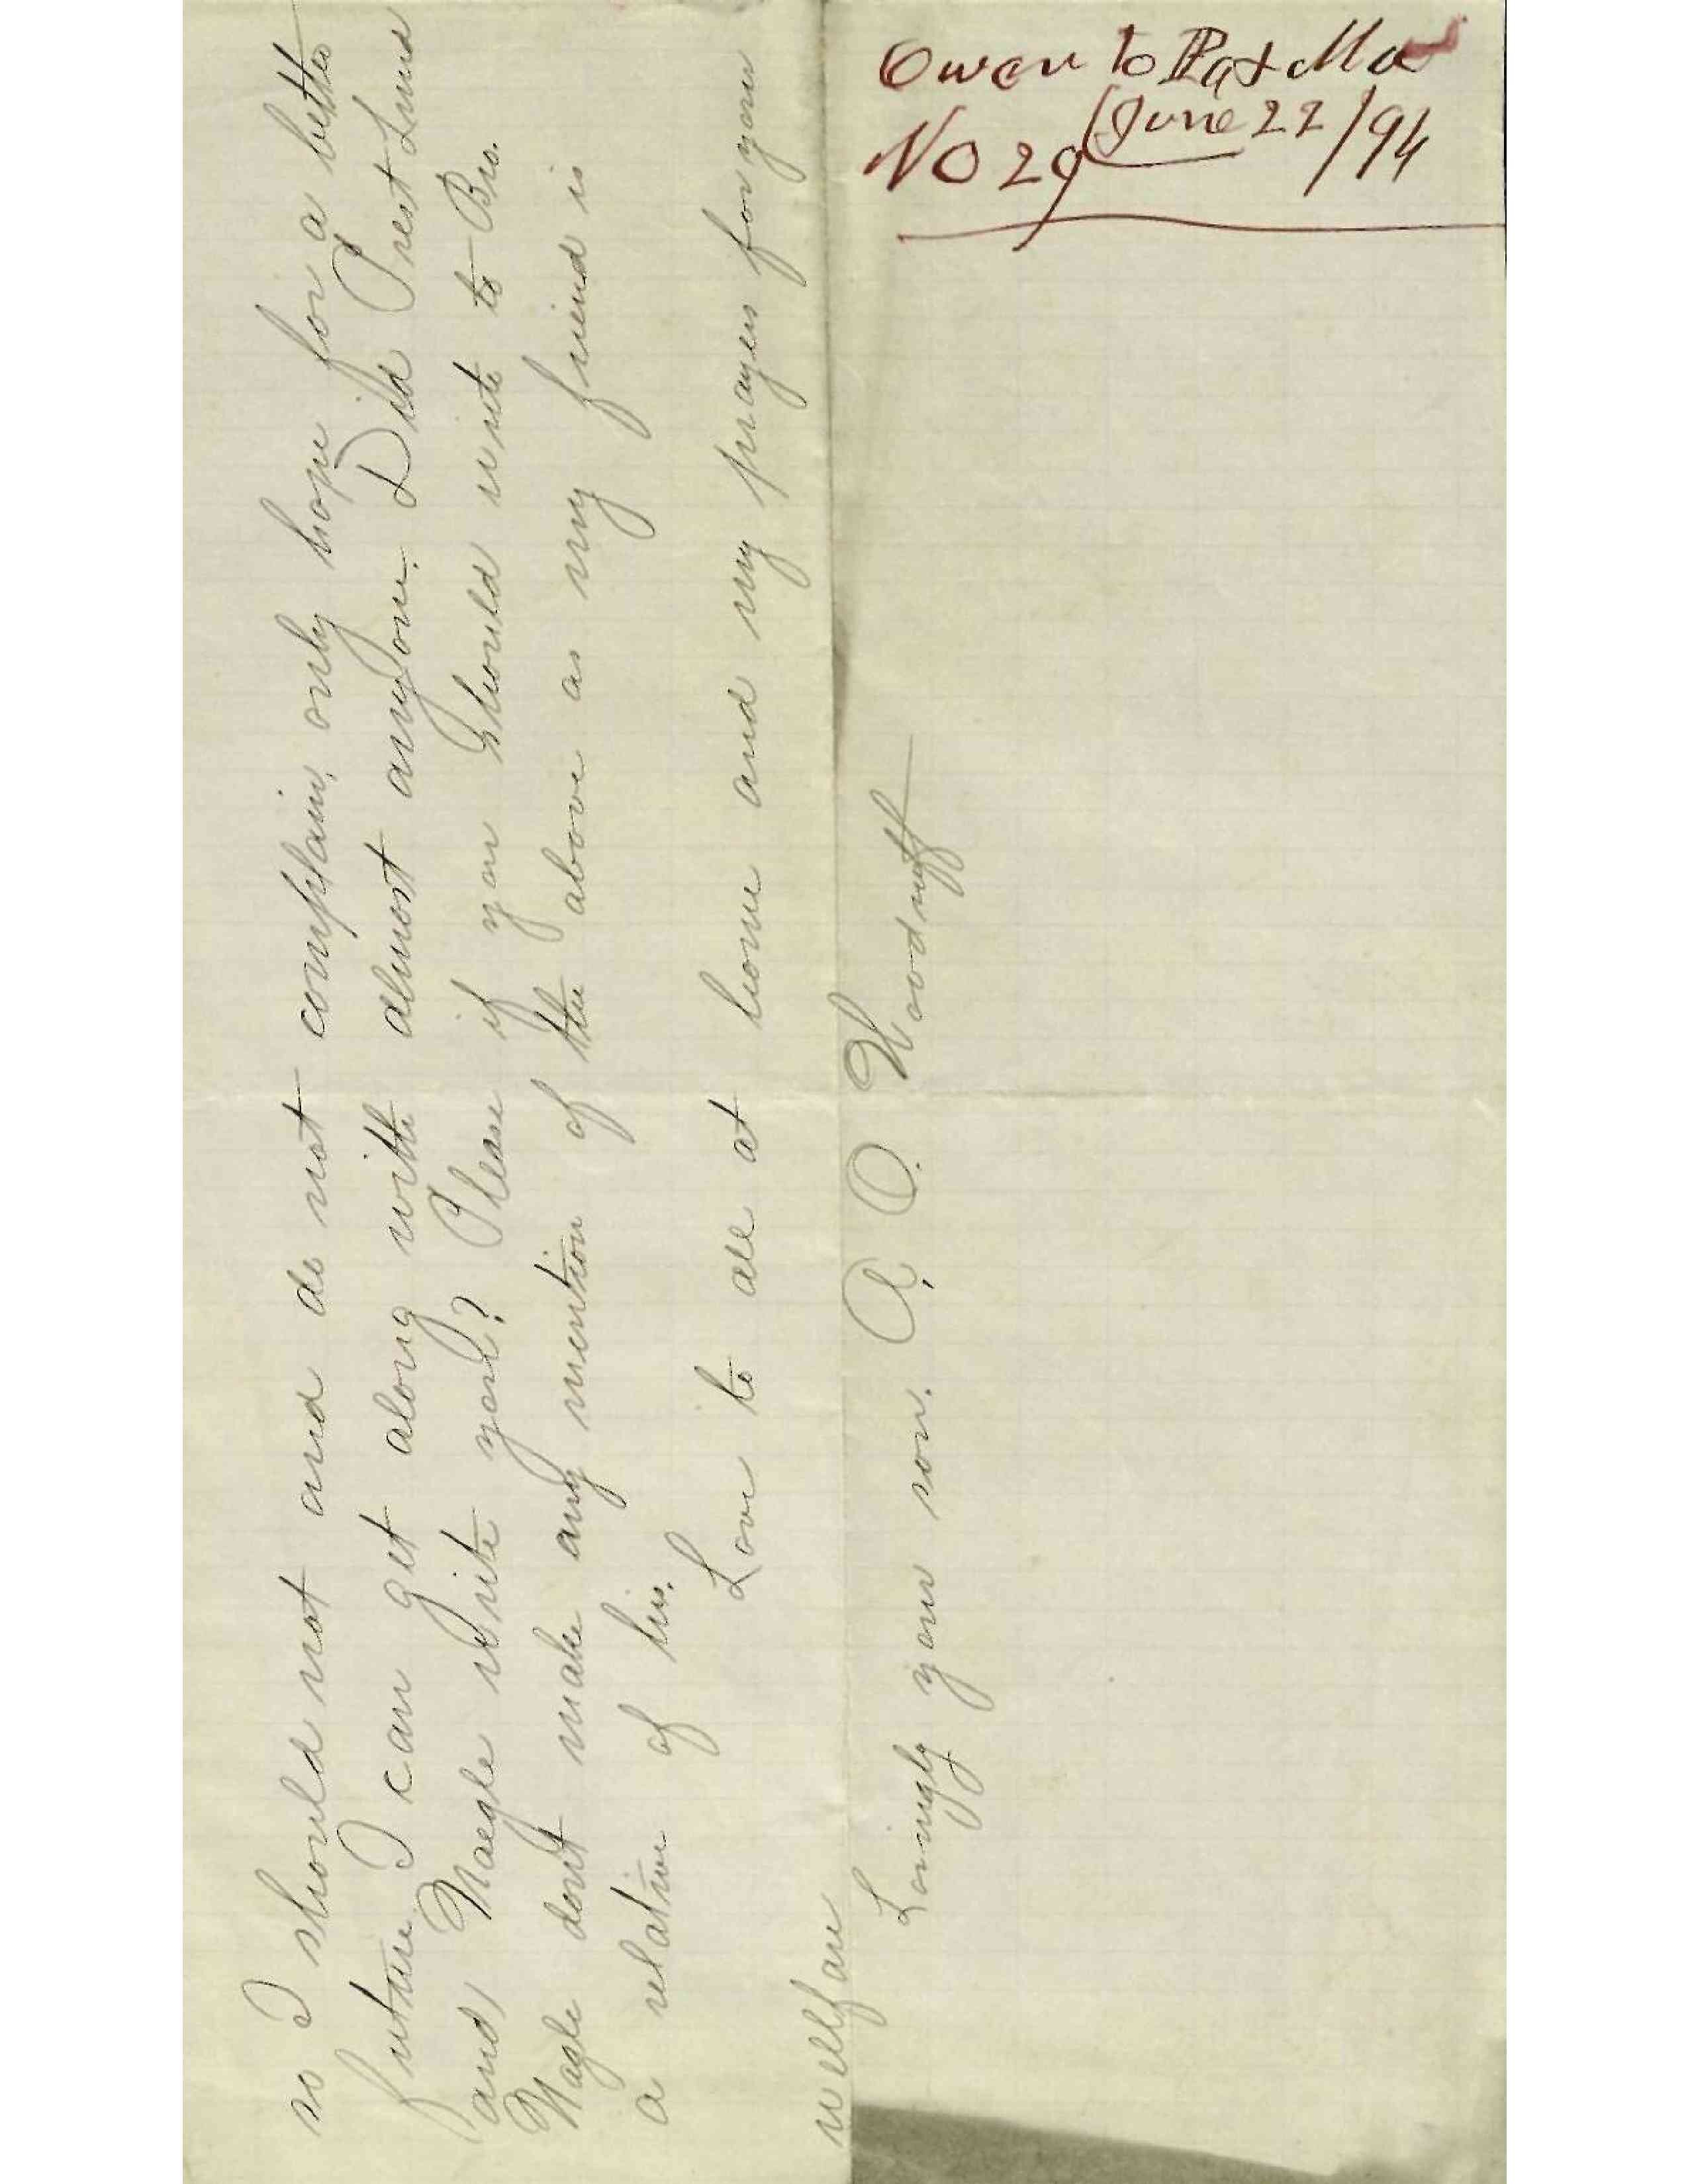 so I should not and do not complain, only hope for a better
future, I can get along with almost anyone. Did Prest Lund
and Naegle write you? Please if you should write to Bro.
Nagle dont make any mention of the above as my friend is
a relative of his.
Love to all at home and my prayers for your
wellfare
Lovingly your son. A. O. Woodruff
Owen to Pa & Ma
June 22/94
NO 29